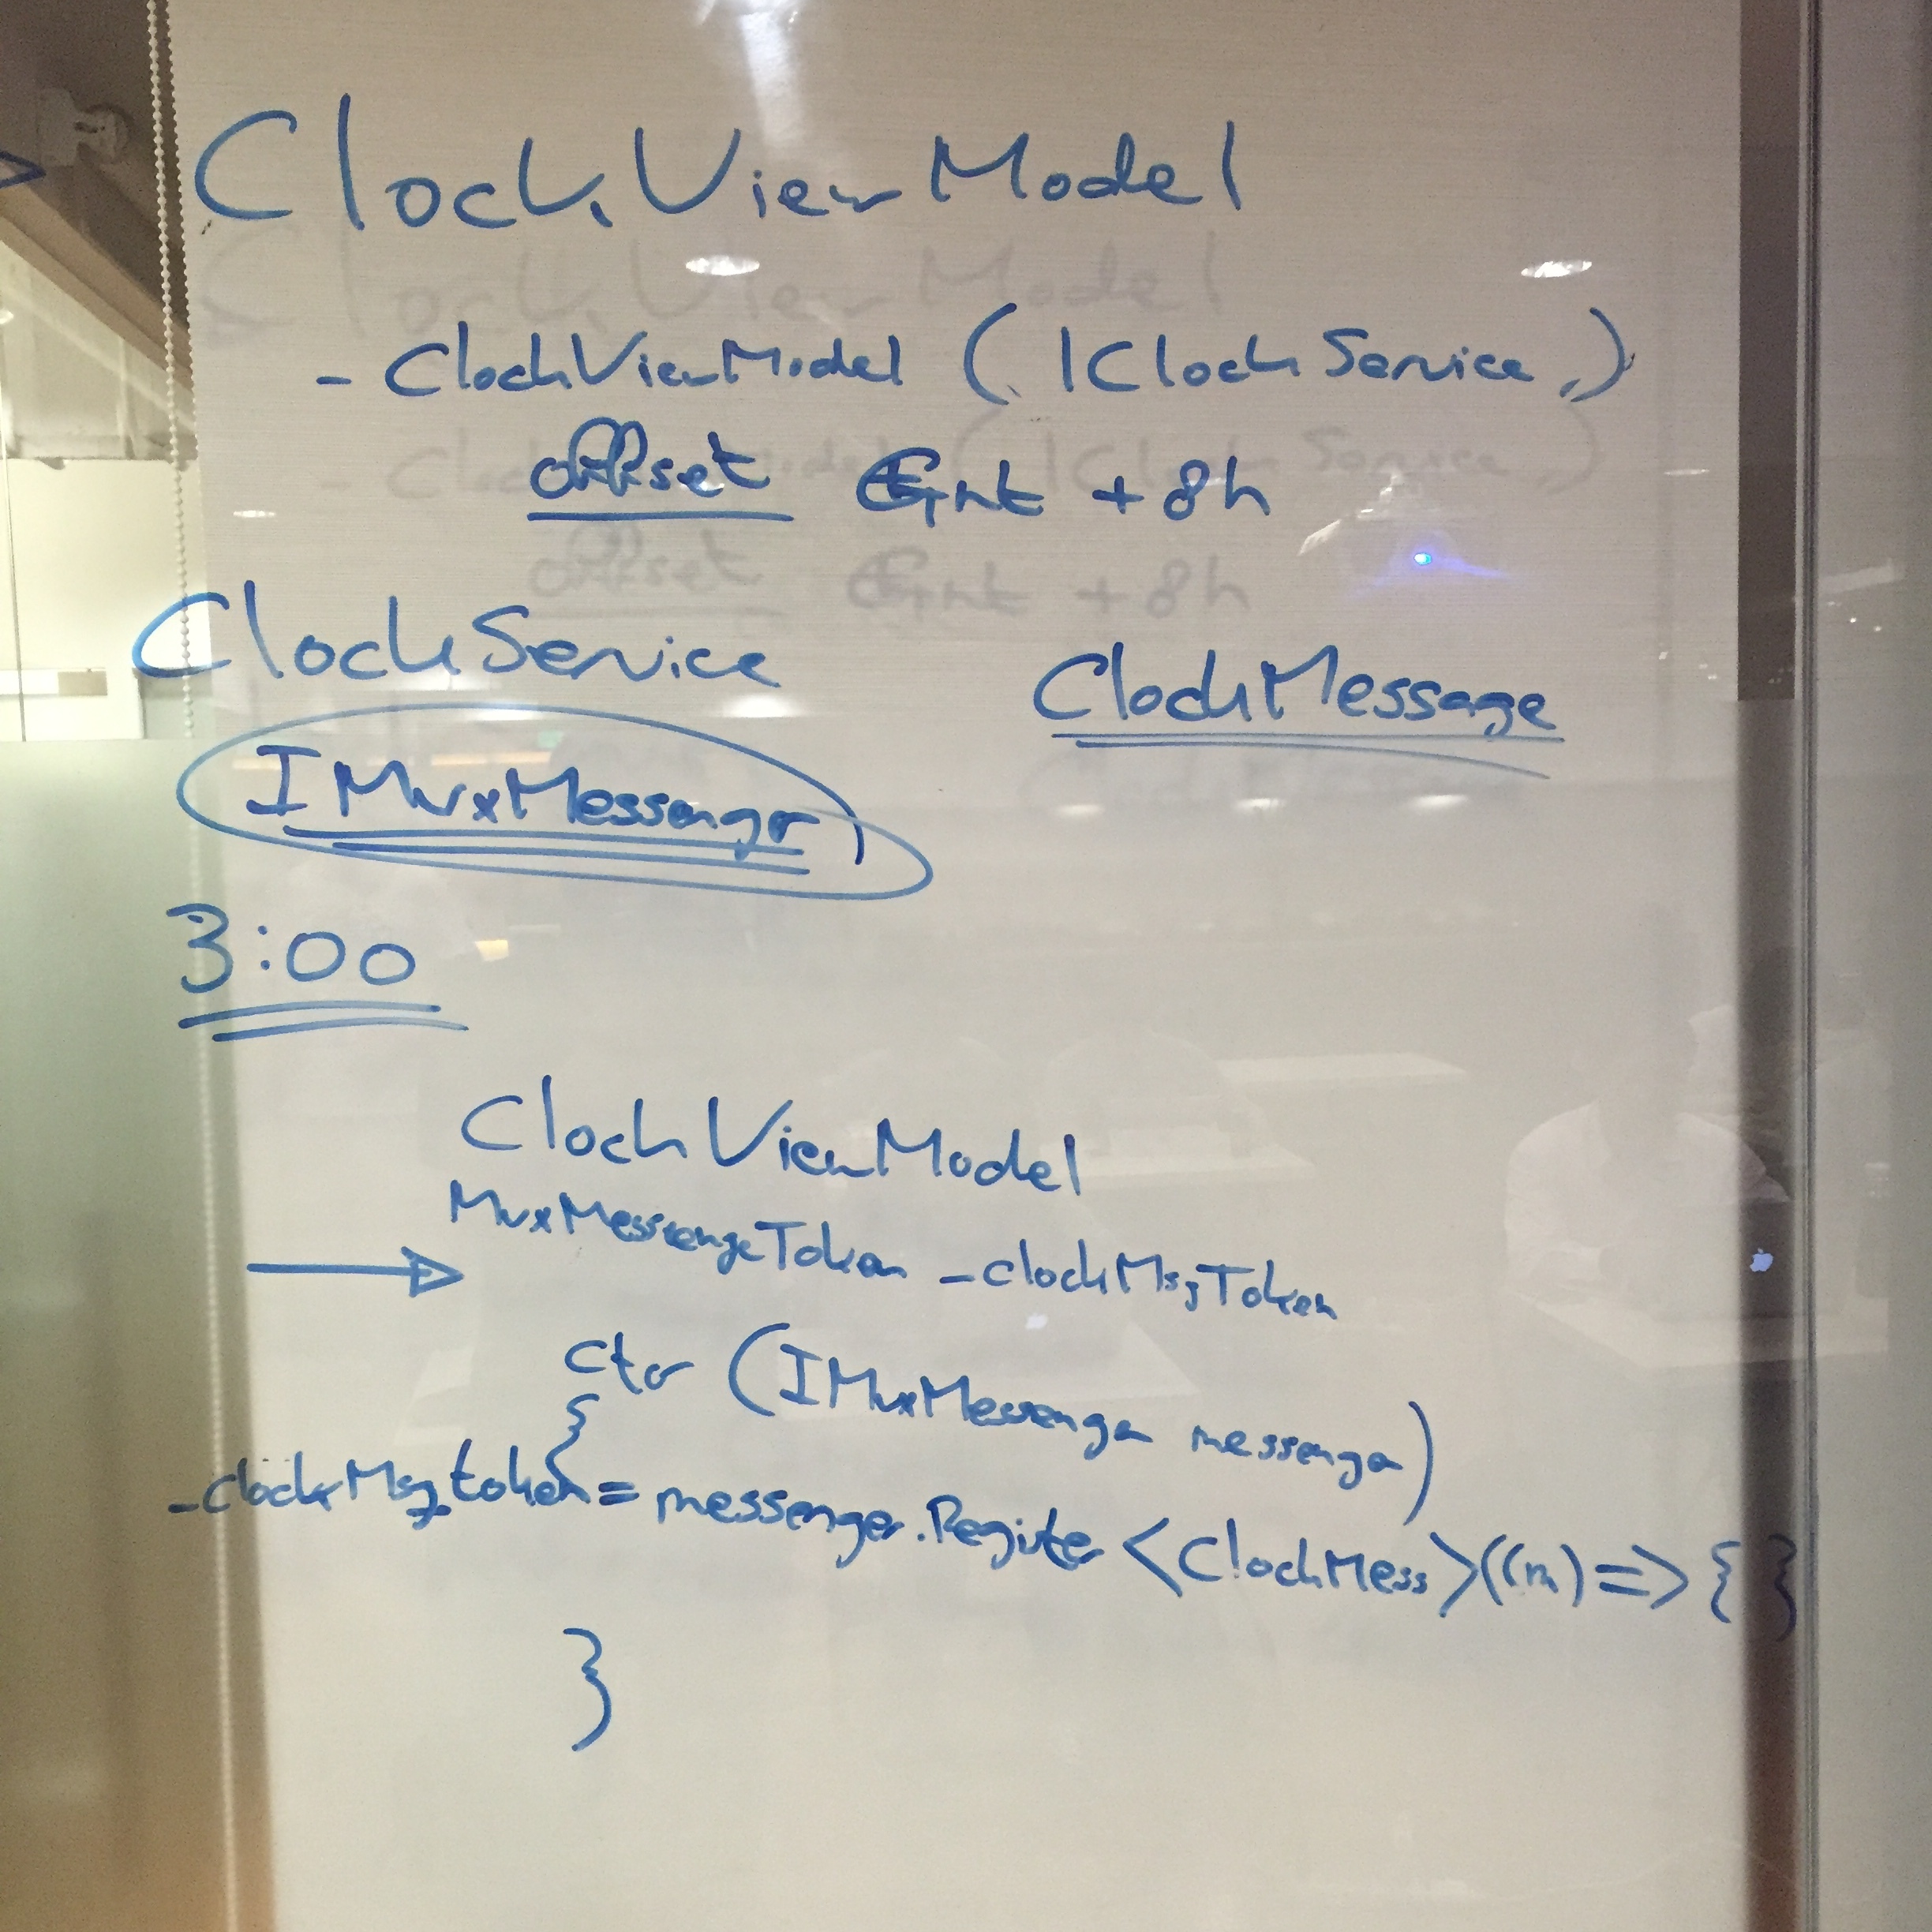 ClockViewModel
- ClockViewModel (IClockService,,)
offset Gmt + 8h
ClockService
ClockMessage
IMvxMessenger
3:00
ClockViewModel
MvxMessengeToken _clockMsgToken
ctor (IMvxMessenger messenger)
{
_clockMsgtoken = messenger.Register <ClockMess>((m) => { }
}